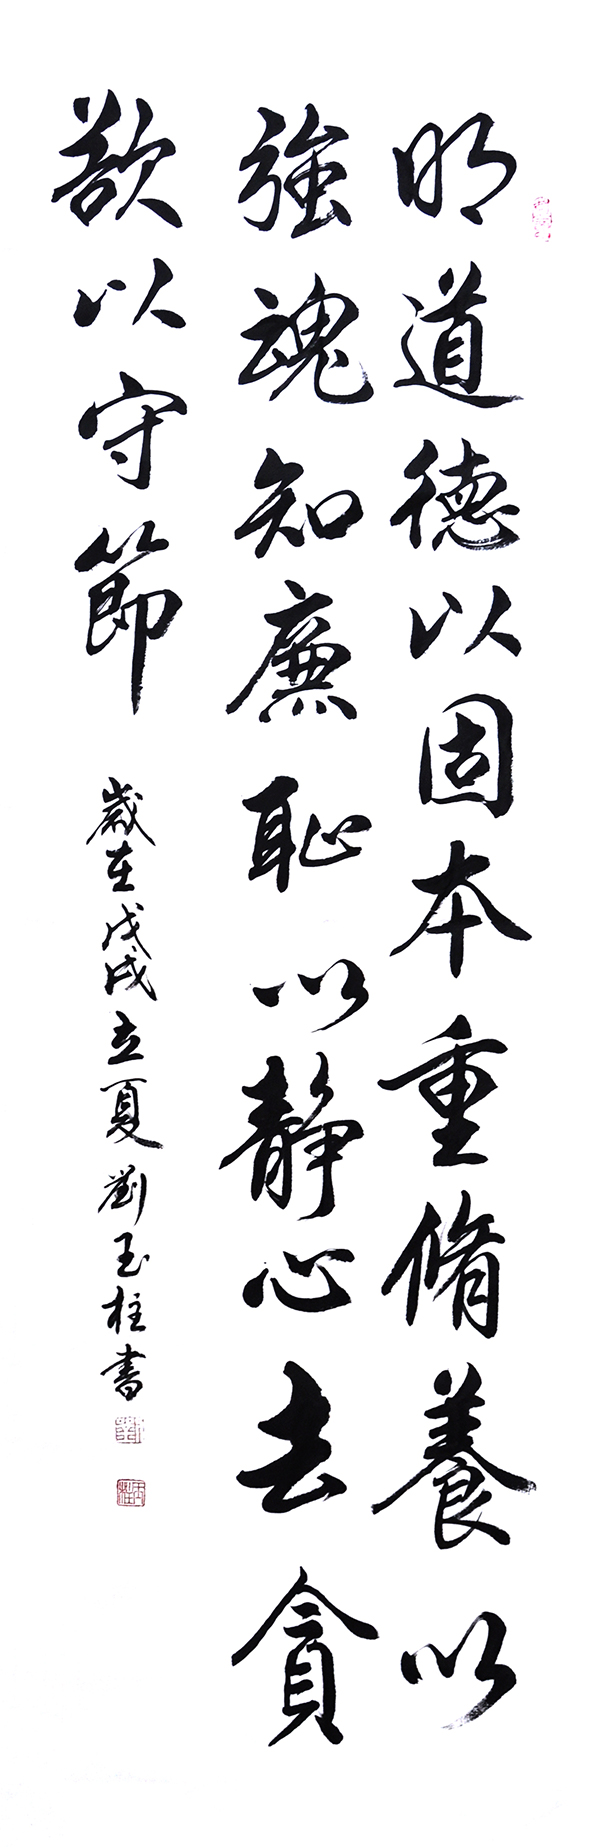 明道德以固本重脩養以
強魂知廉恥以靜心去貪
欲以守節
歲在戊戌立夏劉玉柱書